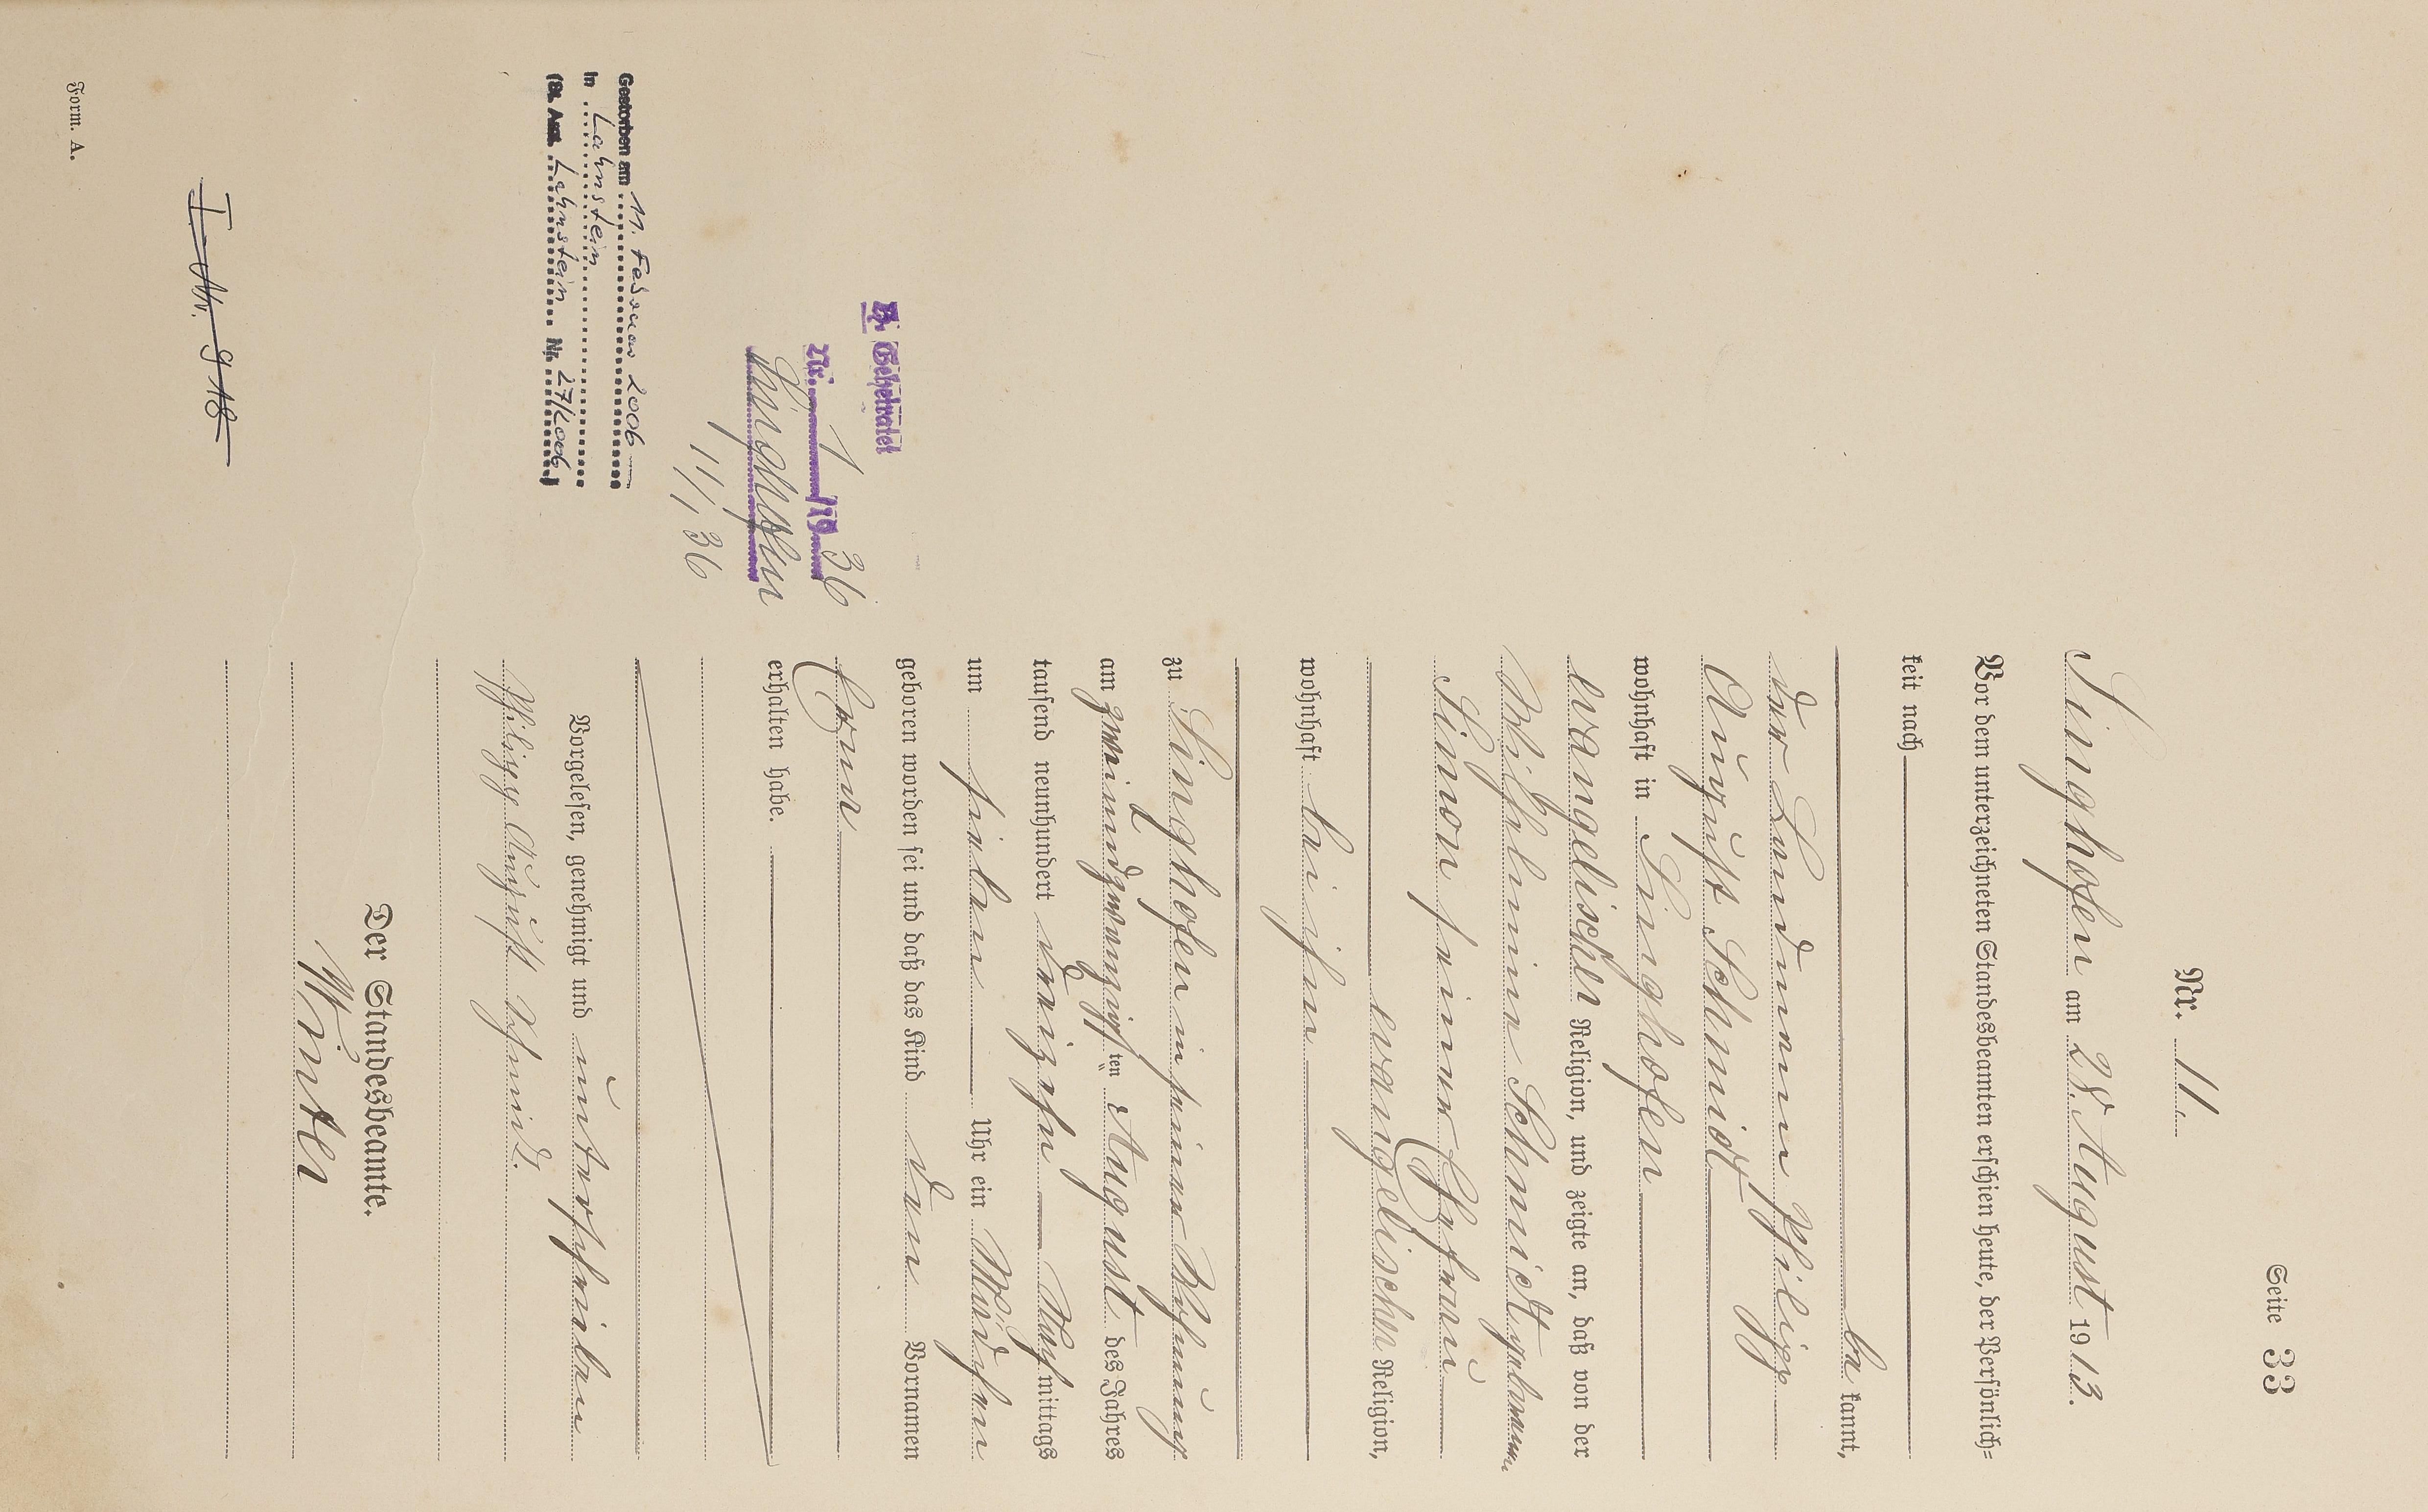 Seite 33
Nr. 11.
Singhofen am 28. August 1913.
Vor dem unterzeichneten Standesbeamten erschien heute, der Persönlich=
keit nach
be kannt,
der Landmann Philipp
August Schmidt
wohnhaft in Singhofen
evangelischer Religion, und zeigte an, daß von der
Wilhelmine Schmidt geborenen
Simon seiner Ehefrau
evangelischer Religion,
wohnhaft bei ihm
zu Singhofen in seiner Wohnung
am zweiundzwanzigsten August des Jahres
tausend neunhundert dreizehn Nachmittags
um sieben Uhr ein Mädchen
geboren worden sei und daß das Kind den Vornamen
Erna
erhalten habe.
Vorgelesen, genehmigt und unterschrieben
Philipp August Schmidt.
Der Standesbeamte.
Winter
Geheiratet
Nr. 1/1936
Singhofen
11/1 36
Gestorben am 11. Februar 2006
in Lahnstein
(St. Amt Lahnstein Nr. 27/2006)
I Nr. 9 18
Form. A.